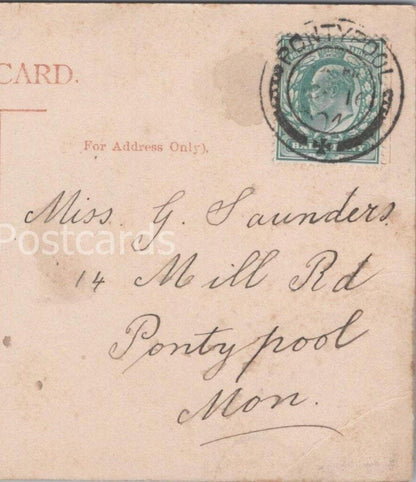 PONTYPOOL
CARD.
For Address Only).
Miss. G. Saunders
Postcards
14 Mill Rd
Pontypool
Mon.